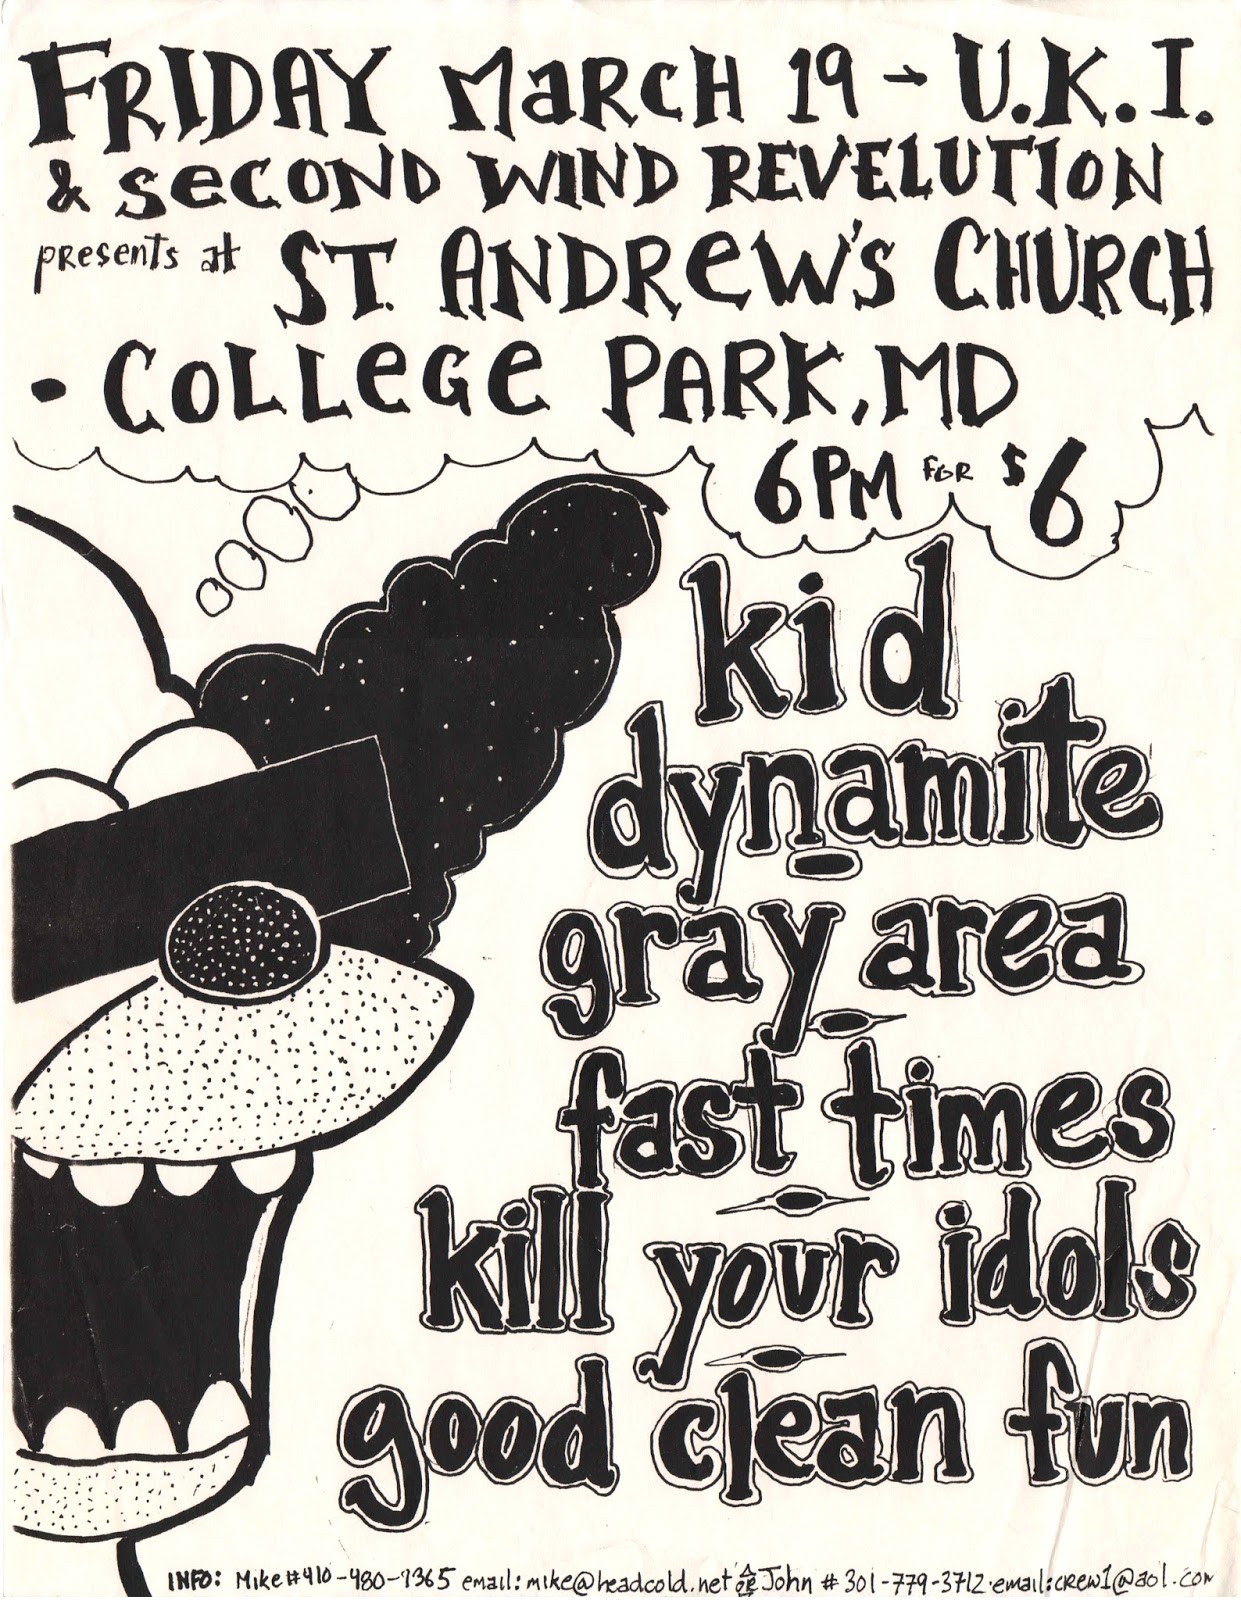 FRIDAY MARCH 19 - U.K.I.
& SECOND WIND REVELUTION
presents at ST. ANDREW'S CHURCH
• COLLEGE PARK, MD
6PM FOR $6
kid
dynamite
gray area
fast times
kill your idols
good clean fun
INFO: Mike #410-480-7365 email: mike@headcold.net OR John # 301-779-3712 · email: crew1@aol.com